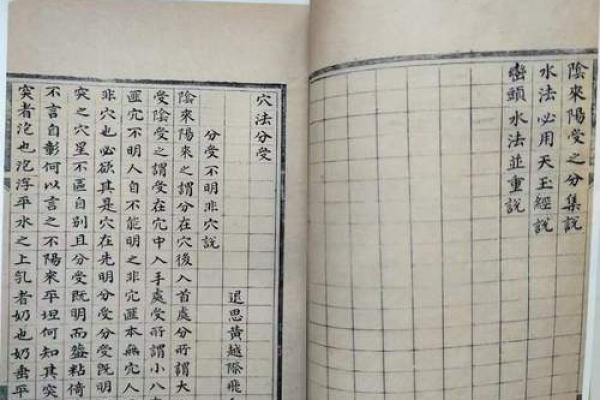 陰來陽受之分集說
水法必用天玉經說
巒頭水法並重說
穴法分受
分受不明非穴說
退思黃越際飛
陰來陽來之謂分在穴後入首處分所謂大
受陰受之謂受在穴中入手處受所謂小八
匪穴不明人自不能明之非穴匪本無穴人
非穴也必欲其是穴在先明分受分受既明
突之穴星不區自別且分受既明而盤粘倚
不言自彰何以言之不陽來平坦何知其突
突者泡也泡浮平水之上乳者奶也奶垂平